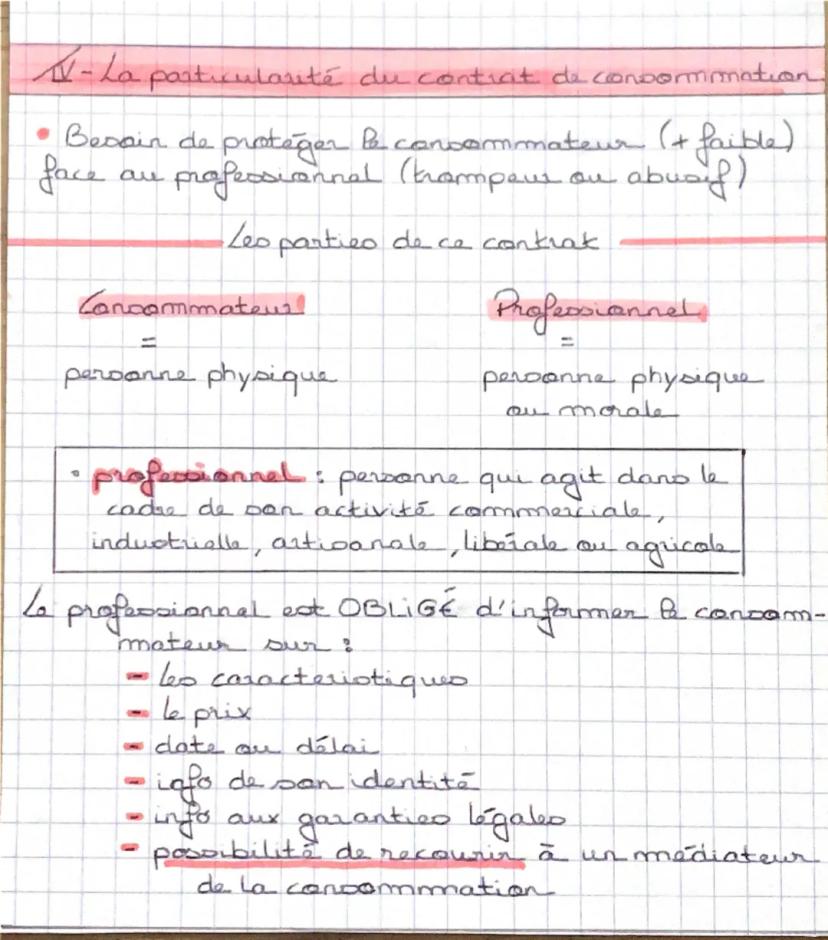 IV - La particularité du contrat de consommation
• Besoin de protéger le consommateur (+ faible)
face au professionnel (trompeur ou abusif)
Les parties de ce contrat
Consommateur Professionnel
= =
personne physique personne physique
ou morale
• professionnel : personne qui agit dans le
cadre de son activité commerciale,
industrielle, artisanale, libérale ou agricole
Le professionnel est OBLIGÉ d'informer le consom-
mateur sur :
- les caracteristiques
- le prix
- date ou délai
- info de son identité
- info aux garanties légales
- possibilité de recourir à un médiateur
de la consommation